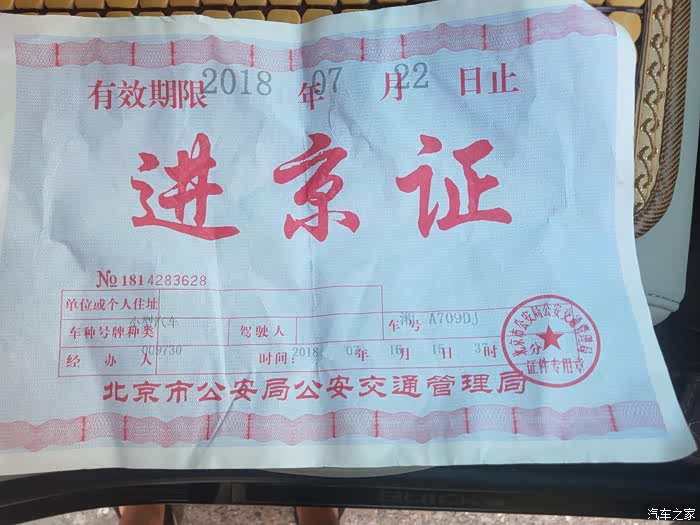 有效期限 2018 年 07 月 22 日止
进京证
№1814283628
单位或个人住址
车种号牌种类 小型汽车 驾驶人 车号 湘A709DJ
经办人 009730 时间: 2018 年 07 月 16 日 15 时 37 分
北京市公安局公安交通管理局
北京市公安局公安交通管理局
证件专用章
BUICK
汽车之家